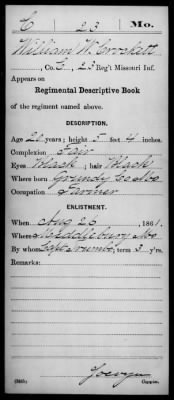 C 23 Mo.
William W. Crockett
, Co. C, 23 Reg't Missouri Inf.
Appears on
Regimental Descriptive Book
of the regiment named above.
DESCRIPTION.
Age 20 years; height 5 feet 4 inches.
Complexion Fair
Eyes Black; hair Black
Where born Grundy Co Mo
Occupation Farmer
ENLISTMENT.
When Aug 26, 1861.
Where Middlebury Mo
By whom Capt; term 3 y'rs.
Remarks:
Copyist.